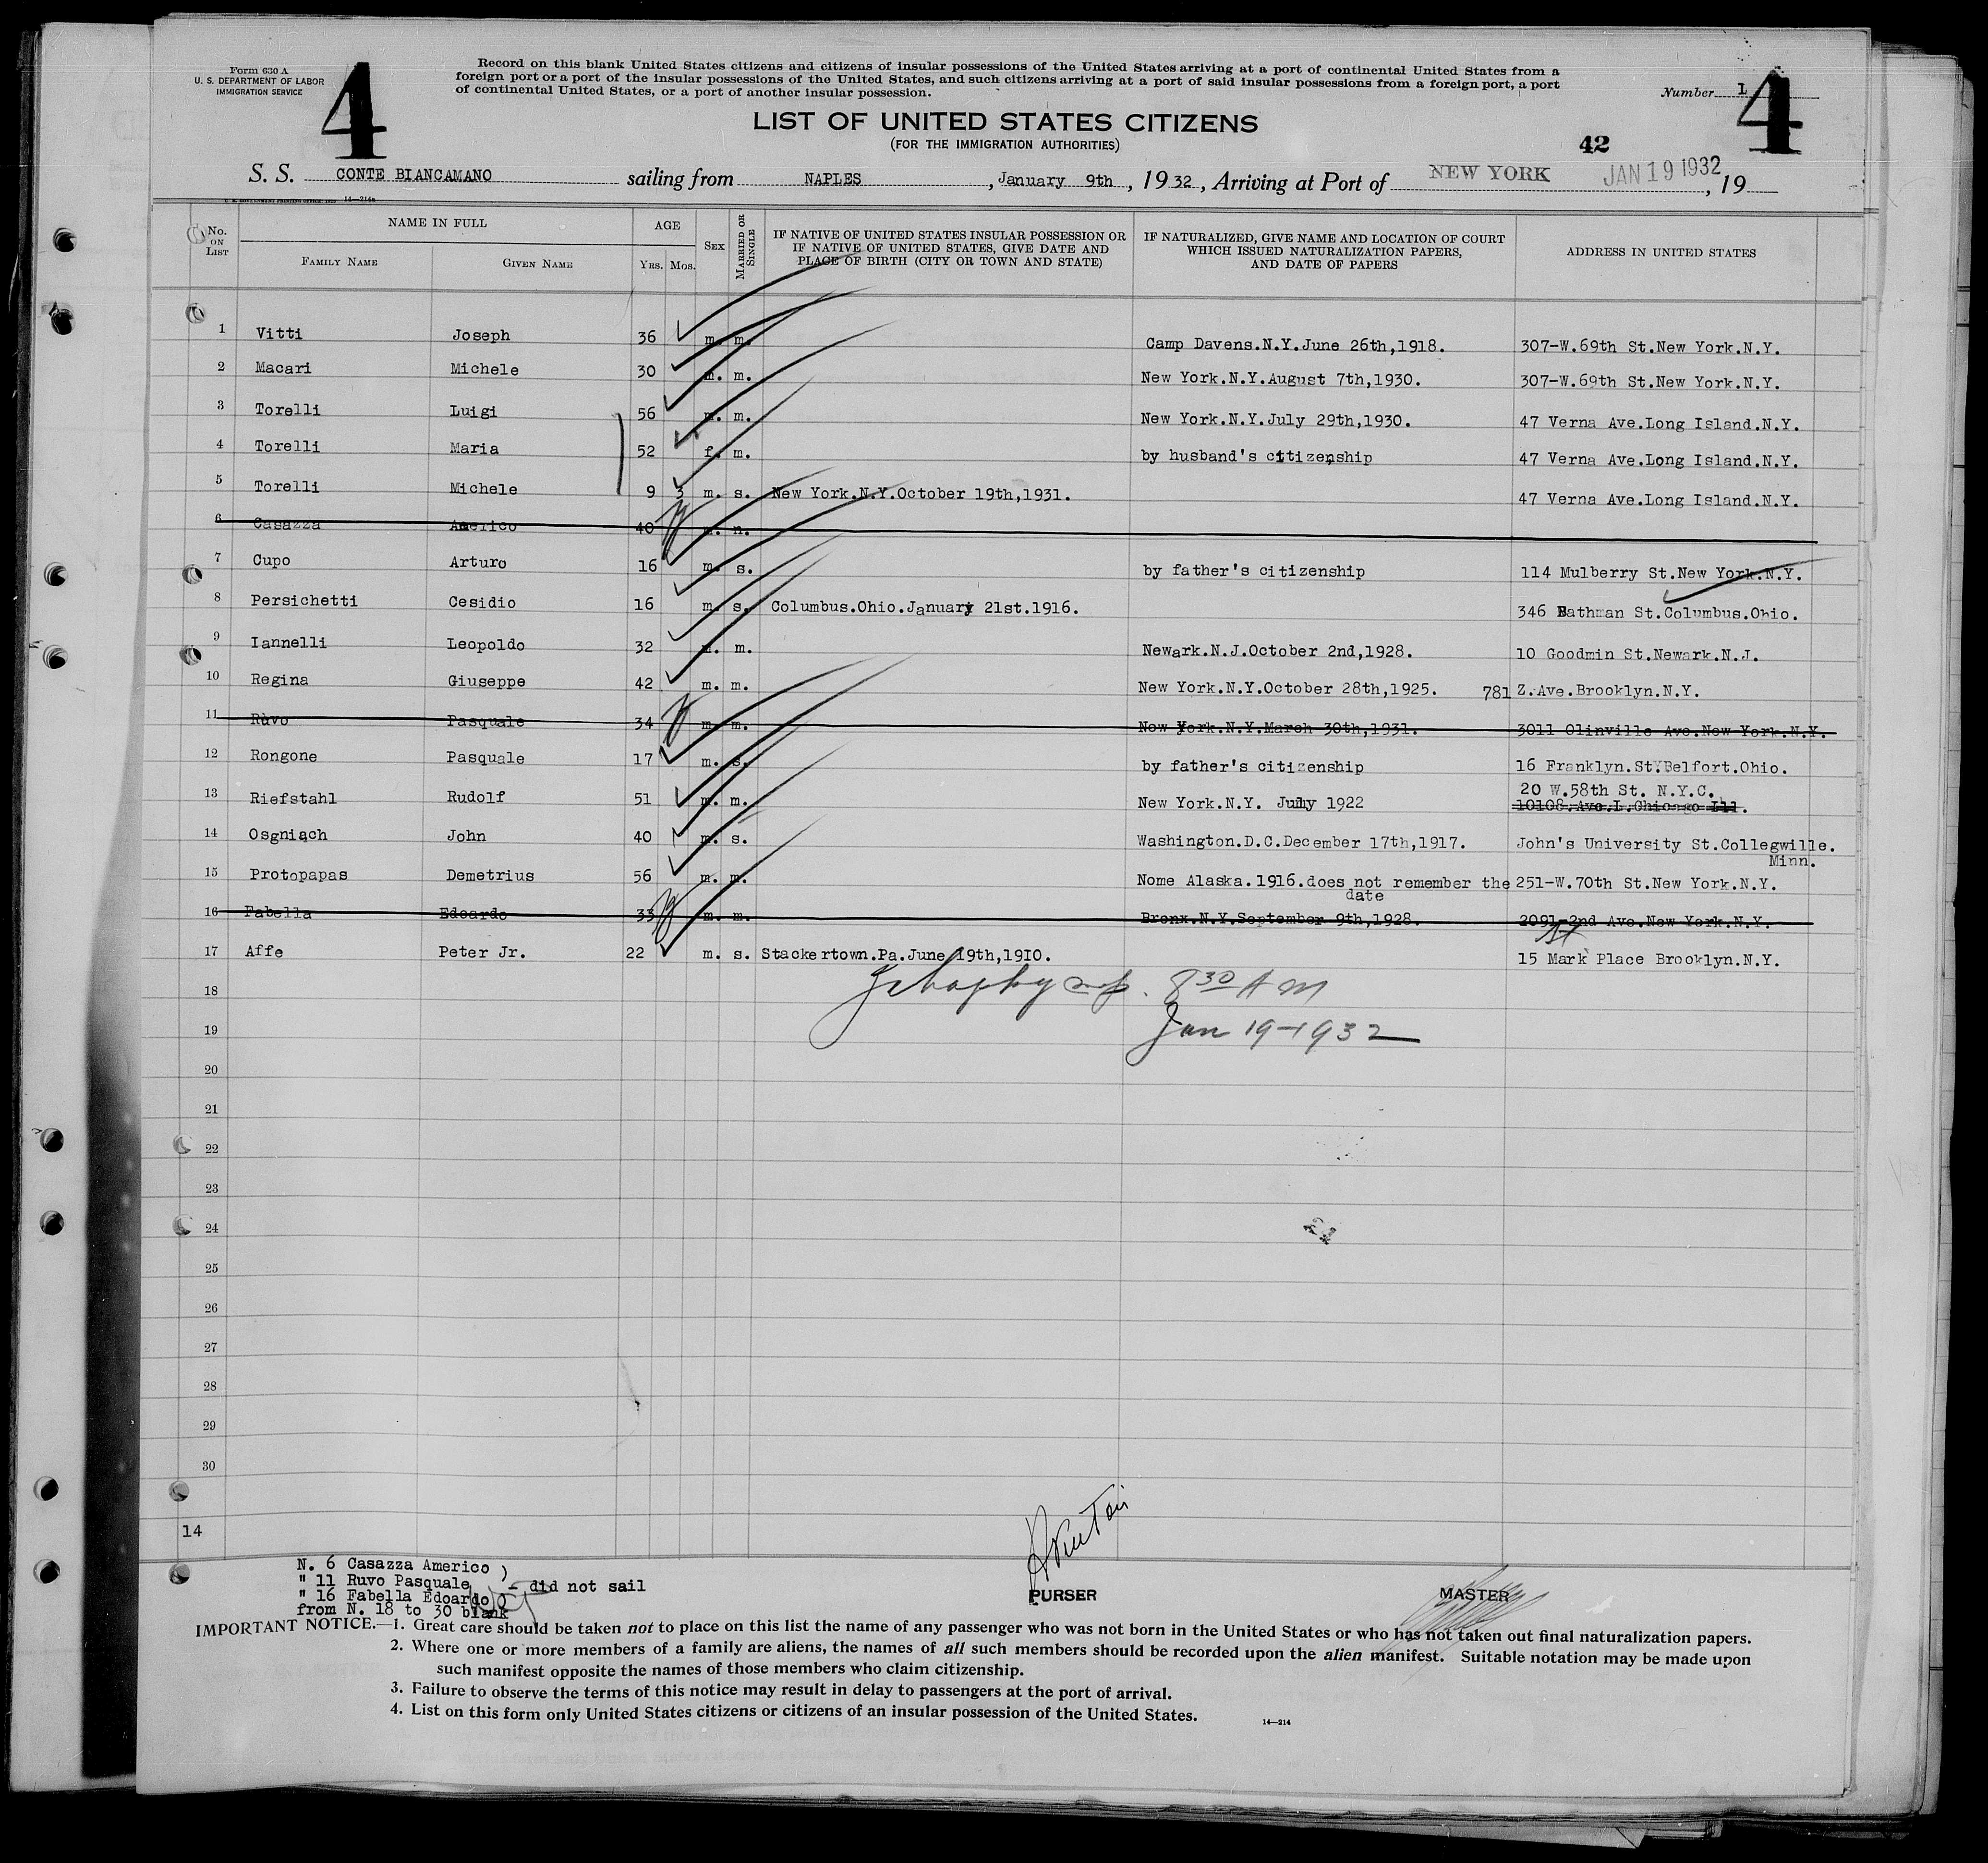 Form 630 A
U. S. DEPARTMENT OF LABOR
IMMIGRATION SERVICE
4
Record on this blank United States citizens and citizens of insular possessions of the United States arriving at a port of continental United States from a
foreign port or a port of the insular possessions of the United States, and such citizens arriving at a port of said insular possessions from a foreign port, a port
of continental United States, or a port of another insular possession.
Number 1
4
LIST OF UNITED STATES CITIZENS
(FOR THE IMMIGRATION AUTHORITIES)
42
S. S. CONTE BIANCAMANO sailing from NAPLES, January 9th, 1932, Arriving at Port of NEW YORK JAN 19 1932, 19
14—214a
No. ON LIST NAME IN FULL AGE SEX MARRIED OR SINGLE IF NATIVE OF UNITED STATES INSULAR POSSESSION OR IF NATIVE OF UNITED STATES, GIVE DATE AND PLACE OF BIRTH (CITY OR TOWN AND STATE) IF NATURALIZED, GIVE NAME AND LOCATION OF COURT WHICH ISSUED NATURALIZATION PAPERS, AND DATE OF PAPERS ADDRESS IN UNITED STATES
FAMILY NAME GIVEN NAME YRS. MOS.
1 Vitti Joseph 36 m. m. Camp Davens.N.Y.June 26th,1918. 307-W.69th St.New York.N.Y.
2 Macari Michele 30 m. m. New York.N.Y.August 7th,1930. 307-W.69th St.New York.N.Y.
3 Torelli Luigi 56 m. m. New York.N.Y.July 29th,1930. 47 Verna Ave.Long Island.N.Y.
4 Torelli Maria 52 f. m. by husband's citizenship 47 Verna Ave.Long Island.N.Y.
5 Torelli Michele 9 3 m. s. New York.N.Y.October 19th,1931. 47 Verna Ave.Long Island.N.Y.
6 Casazza Americo 40 m. n.
7 Cupo Arturo 16 m. s. by father's citizenship 114 Mulberry St.New York.N.Y.
8 Persichetti Cesidio 16 m. s. Columbus.Ohio.January 21st.1916. 346 Bathman St.Columbus.Ohio.
9 Iannelli Leopoldo 32 m. m. Newark.N.J.October 2nd,1928. 10 Goodmin St.Newark.N.J.
10 Regina Giuseppe 42 m. m. New York.N.Y.October 28th,1925. 781 Z.Ave.Brooklyn.N.Y.
11 Ruvo Pasquale 34 m. m. New York.N.Y.March 30th,1931. 3011 Olinville Ave.New York.N.Y.
12 Rongone Pasquale 17 m. s. by father's citizenship 16 Franklyn.St.Belfort.Ohio.
13 Riefstahl Rudolf 51 m. m. New York.N.Y. July 1922 20 W.58th St. N.Y.C.
10108.Ave.L.Chicago Ill.
14 Osgniach John 40 m. s. Washington.D.C.December 17th,1917. John's University St.Collegwille.
Minn.
15 Protopapas Demetrius 56 m. m. Nome Alaska.1916.does not remember the 251-W.70th St.New York.N.Y.
date
16 Fabella Edoardo 33 m. m. Bronx.N.Y.September 9th,1928. 2091-2nd Ave.New York.N.Y.
17 Affe Peter Jr. 22 m. s. Stackertown.Pa.June 19th,1910. 15 Mark Place Brooklyn.N.Y.
St
18 8 30 A M
19 Jan 19-1932
20
21
22
23
24
25
26
27
28
29
30
14
N. 6 Casazza Americo )
" 11 Ruvo Pasquale - did not sail
" 16 Fabella Edoardo )
from N. 18 to 30 blank
PURSER
MASTER
IMPORTANT NOTICE.—1. Great care should be taken not to place on this list the name of any passenger who was not born in the United States or who has not taken out final naturalization papers.
2. Where one or more members of a family are aliens, the names of all such members should be recorded upon the alien manifest. Suitable notation may be made upon
such manifest opposite the names of those members who claim citizenship.
3. Failure to observe the terms of this notice may result in delay to passengers at the port of arrival.
4. List on this form only United States citizens or citizens of an insular possession of the United States.
14—214